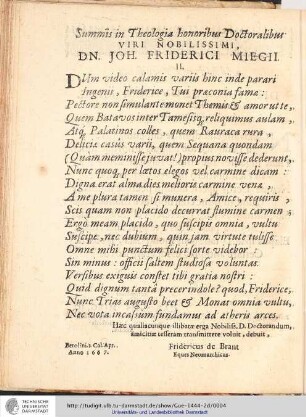 Summis in Theologia honoribus Doctoralibus
VIRI NOBILISSIMI,
DN. JOH. FRIDERICI MIEGII.
II.
DUm video calamis variis hinc inde parari
Ingenii, Friderice, Tui præconia fama:
Pectore non simulante monet Themis & amor ut te,
Quem Batavos inter Tamesisq; reliquimus aulam,
Atq; Palatinos colles, quem Rauraca rura,
Delicia casus varii, quem Sequana quondam
(Quam meminisse juvat!) propius novisse dederunt,
Nunc quoq; per lætos elegos vel carmine dicam:
Digna erat alma dies melioris carmine vena,
A me plura tamen si munera, Amice, requiris,
Scis quam non placido decurrat flumine carmen;
Ergo meam placido, quo suscipis omnia, vultu
Suscipe, nec dubium, quin jam virtute tulisse
Omne mihi punctum felici sorte videbor:
Sin minus: officii saltem studiosa voluntas
Versibus exiguis constet tibi grata nostri:
Quid dignum tanta precer inde? quod, Friderice,
Nunc Trias augusto beet & Monas omnia vultu,
Nec vota incassum fundamus ad ætheris arces.
Hæc qualiacunque illibatæ erga Nobiliss. D. Doctorandum,
amicitiæ tesseram transmittere voluit, debuit,
Berolini a. Cal. Apr.
Anno 1667.
Fridericus de Brant
Eques Neomarchicus.
TECHNISCHE
UNIVERSITÄT
DARMSTADT
http://tudigit.ulb.tu-darmstadt.de/show/Gue-1444-20/0004
Universitäts- und Landesbibliothek Darmstadt